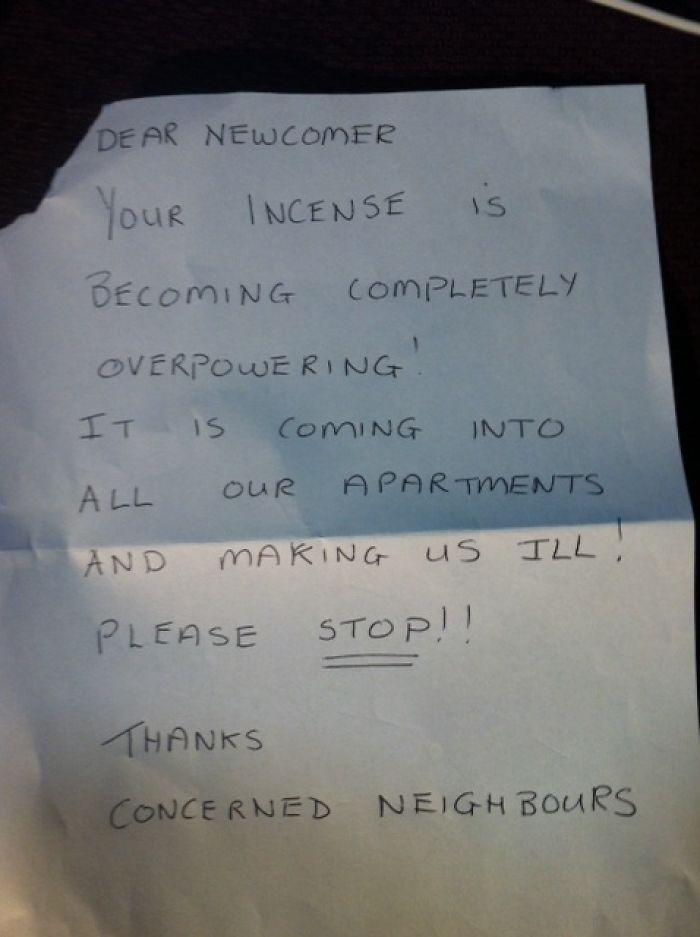 DEAR NEWCOMER
YOUR INCENSE IS
BECOMING COMPLETELY
OVERPOWERING!
IT IS COMING INTO
ALL OUR APARTMENTS
AND MAKING US ILL!
PLEASE STOP!!
THANKS
CONCERNED NEIGHBOURS